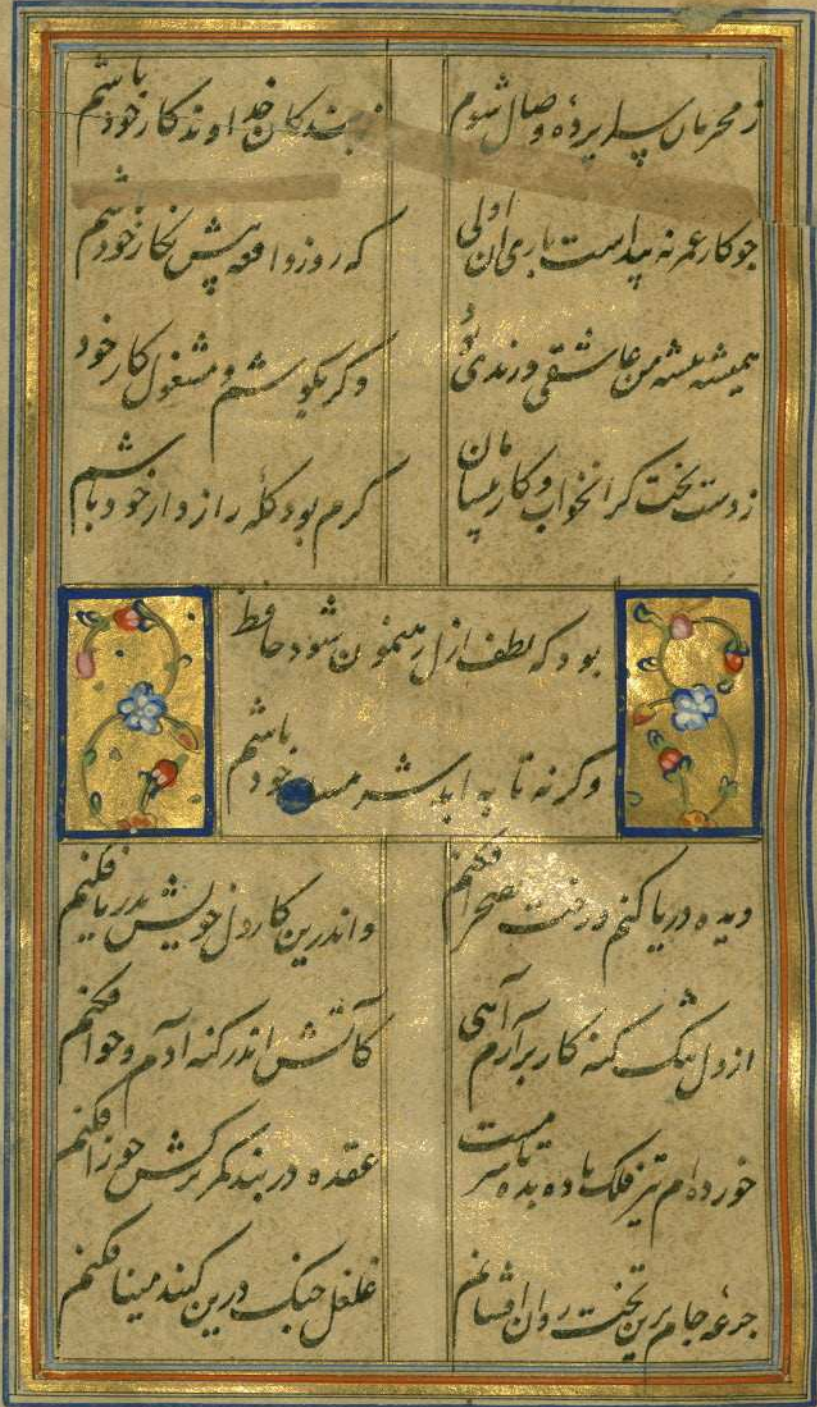 ز محرمان سراپرده وصال شوم
ز بندکان خداوندکار خود باشم
جو کار عمر نه پیداست باری ان اولی
که روز واقعه پیش نکار خود باشم
همیشه پیشه من عاشقی و رندی بود
دکر بکوشم و مشغول کار خود
ز دست بخت کرانخواب و کار بیسامان
کرم بود کلهٔ رازدار خود باشم
بود که لطف ازل رهنمون شود حافظ
وکرنه تا به ابد شرمسار خود باشم
دیده دریا کنم و رخت بصحرا فکنم
واندرین کار دل خویش بدریا فکنم
از دل تنک کنه کار برارم آهی
کآتش اندر کنه آدم و حوا فکنم
خورده‌ام تیر فلک باده بده تا سرمست
عقده در بند کمر ترکش جوزا فکنم
جرعه جام برین تخت روان افشانم
غلغل جنک درین کنبد مینا فکنم